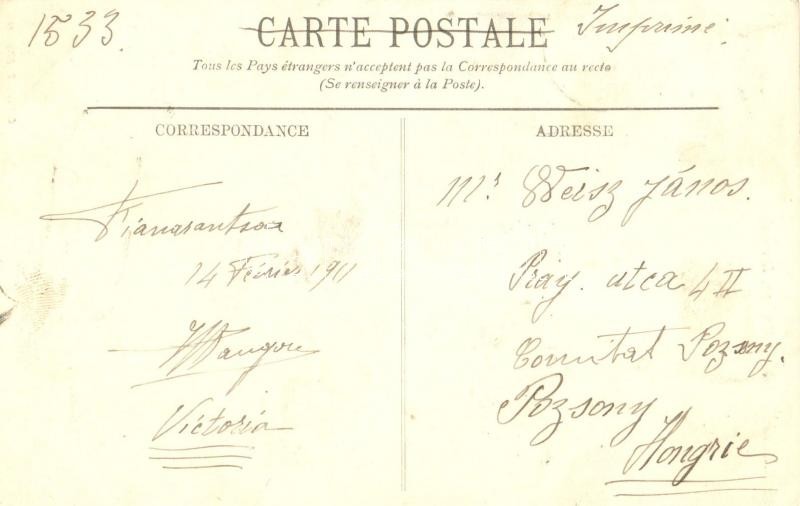 1533.
CARTE POSTALE
Imprimé.
Tous les Pays étrangers n'acceptent pas la Correspondance au recto
(Se renseigner à la Poste).
CORRESPONDANCE
Fianarantsoa
14 Février 1911
Victoria
ADRESSE
Mr. Weisz János.
Pray. utca 4 II
Comitat Pozsony.
Pozsony
Hongrie